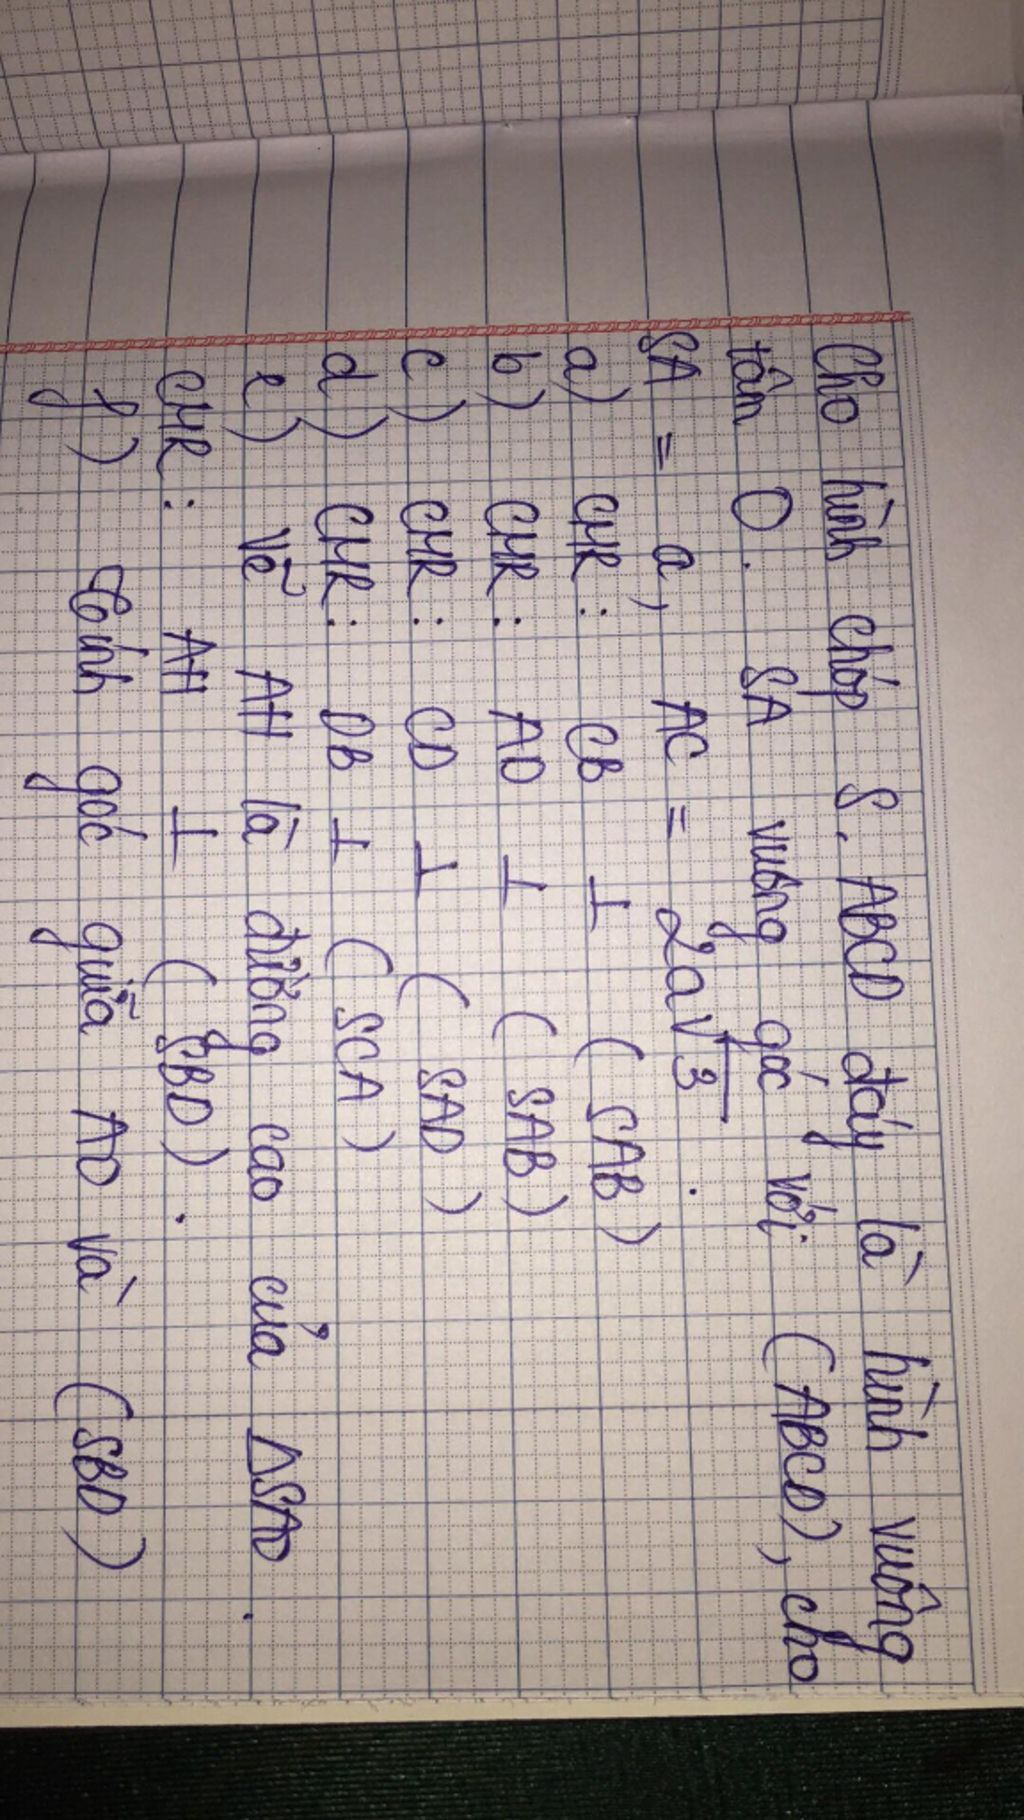 Cho hình chóp S.ABCD đáy là hình vuông
tân O. SA vuông góc với (ABCD), cho
SA = a, AC = 2a√3.
a) CMR: CB ⊥ (SAB)
b) CMR: AD ⊥ (SAB)
c) CMR: CD ⊥ (SAD)
d) CMR: DB ⊥ (SCA)
e) Vẽ AH là đường cao của ΔSAO.
CMR: AH ⊥ (SBD).
f) Tính góc giữa AO và (SBD)